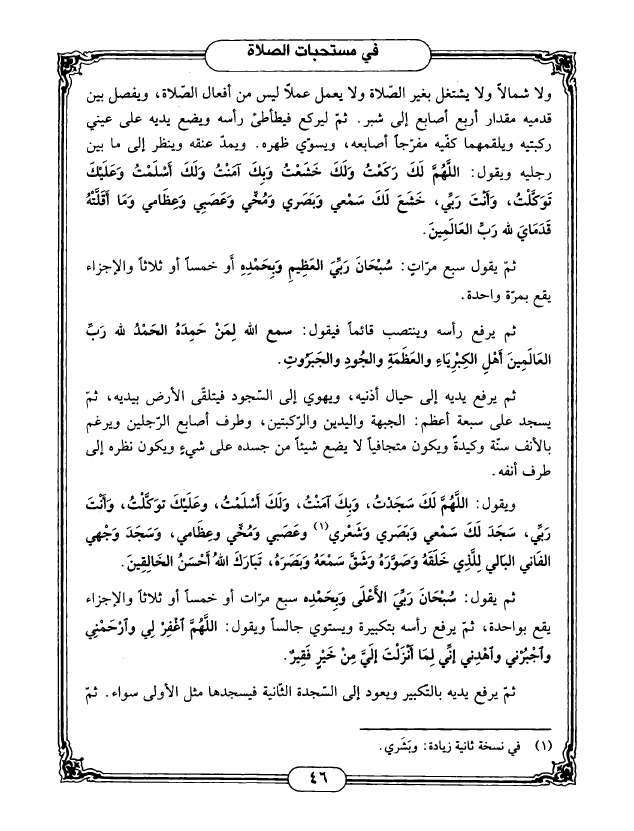 في مستحبات الصلاة
ولا شمالاً ولا يشتغل بغير الصّلاة ولا يعمل عملاً ليس من أفعال الصّلاة، ويفصل بين
قدميه مقدار أربع أصابع إلى شبر. ثمّ ليركع فيطأطئ رأسه ويضع يديه على عيني
ركبتيه ويلقمهما كفّيه مفرّجاً أصابعه، ويسوّي ظهره. ويمدّ عنقه وينظر إلى ما بين
رجليه ويقول: اللَّهُمَّ لَكَ رَكَعْتُ وَلَكَ خَشَعْتُ وَبِكَ آمَنْتُ وَلَكَ أَسْلَمْتُ وَعَلَيْكَ
تَوَكَّلْتُ، وَأَنْتَ رَبِّي، خَشَعَ لَكَ سَمْعي وَبَصَري وَمُخّي وَعَصَبي وَعِظامي وَمَا أَقَلَّتْهُ
قَدَمَايَ لله رَبِّ العَالَمِينَ.
ثمّ يقول سبع مرّاتٍ: سُبْحَانَ رَبِّيَ العَظِيمِ وَبِحَمْدِهِ أو خمساً أو ثلاثاً والإجزاء
يقع بمرّة واحدة.
ثم يرفع رأسه وينتصب قائماً فيقول: سمع الله لِمَنْ حَمِدَهُ الحَمْدُ لله رَبِّ
العَالَمِينَ أَهْلِ الكِبْرِيَاءِ والعَظَمَةِ والجُودِ والجَبَرُوتِ.
ثم يرفع يديه إلى حيال أذنيه، ويهوي إلى السّجود فيتلقّى الأرض بيديه، ثمّ
يسجد على سبعة أعظم: الجبهة واليدين والرّكبتين، وطرف أصابع الرّجلين ويرغم
بالأنف سنّة وكيدةً ويكون متجافياً لا يضع شيئاً من جسده على شيءٍ ويكون نظره إلى
طرف أنفه.
ويقول: اللَّهُمَّ لَكَ سَجَدْتُ، وَبِكَ آمَنْتُ، وَلَكَ أَسْلَمْتُ، وعَلَيْكَ تَوَكَّلْتُ، وَأَنْتَ
رَبِّي، سَجَدَ لَكَ سَمْعي وَبَصَري وَشَعْري(١) وعَصَبي وَمُخّي وعِظامي، وَسَجَدَ وَجْهي
الفَاني البَالي لِلَّذِي خَلَقَهُ وَصَوَّرَهُ وَشَقَّ سَمْعَهُ وَبَصَرَهُ، تَبَارَكَ اللهُ أَحْسَنُ الخَالِقِينَ.
ثم يقول: سُبْحَانَ رَبِّيَ الأَعْلَى وَبِحَمْدِه سبع مرّات أو خمساً أو ثلاثاً والإجزاء
يقع بواحدة، ثمّ يرفع رأسه بتكبيرة ويستوي جالساً ويقول: اللَّهُمَّ اَغْفِرْ لِي واَرْحَمْنِي
واَجْبُرْني واَهْدِني إنِّي لِمَا أَنْزَلْتَ إلَيَّ مِنْ خَيْرٍ فَقِيرٌ.
ثمّ يرفع يديه بالتكبير ويعود إلى السّجدة الثّانية فيسجدها مثل الأولى سواء. ثمّ
(١) في نسخة ثانية زيادة: وبَشَري.
٤٦